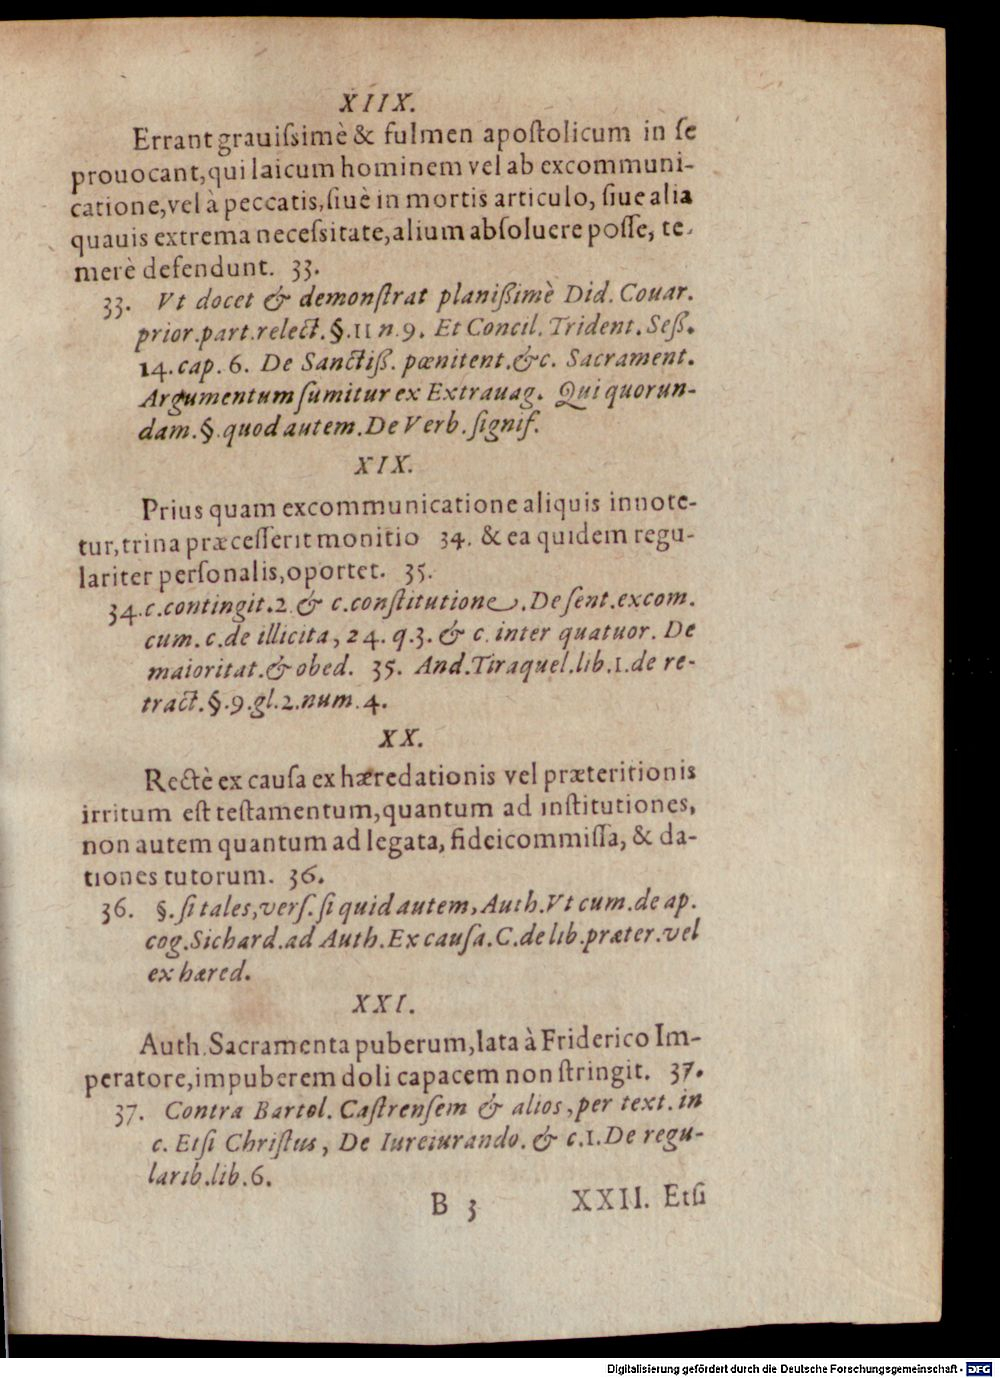 XIIX.
Errant grauiſsimè & fulmen apoſtolicum in ſe
prouocant, qui laicum hominem vel ab excommuni-
catione, vel à peccatis, ſiuè in mortis articulo, ſiue alia
quauis extrema neceſsitate, alium abſoluere poſſe, te-
merè defendunt. 33.
33. Vt docet & demonſtrat planißimè Did. Couar.
prior. part. relect. §. 11 n. 9. Et Concil. Trident. Seß.
14. cap. 6. De Sanctiß. pœnitent. &c. Sacrament.
Argumentum ſumitur ex Extrauag. Qui quorun-
dam. §. quod autem. De Verb. ſignif.
XIX.
Prius quam excommunicatione aliquis innote-
tur, trina præceſſerit monitio 34. & ea quidem regu-
lariter perſonalis, oportet. 35.
34. c. contingit. 2. & c. conſtitutione. De ſent. excom.
cum. c. de illicita, 24. q. 3. & c. inter quatuor. De
maioritat. & obed. 35. And. Tiraquel. lib. 1. de re-
tract. §. 9. gl. 2. num. 4.
XX.
Rectè ex cauſa exhæredationis vel præteritionis
irritum eſt teſtamentum, quantum ad inſtitutiones,
non autem quantum ad legata, fideicommiſſa, & da-
tiones tutorum. 36.
36. §. ſi tales, verſ. ſi quid autem, Auth. Vt cum. de ap.
cog. Sichard. ad Auth. Ex cauſa. C. de lib. præter. vel
exhæred.
XXI.
Auth. Sacramenta puberum, lata à Friderico Im-
peratore, impuberem doli capacem non ſtringit. 37.
37. Contra Bartol. Caſtrenſem & alios, per text. in
c. Etſi Chriſtus, De Iureiurando. & c. 1. De regu-
larib. lib. 6.
B 3 XXII. Etſi
Digitalisierung gefördert durch die Deutsche Forschungsgemeinschaft - DFG